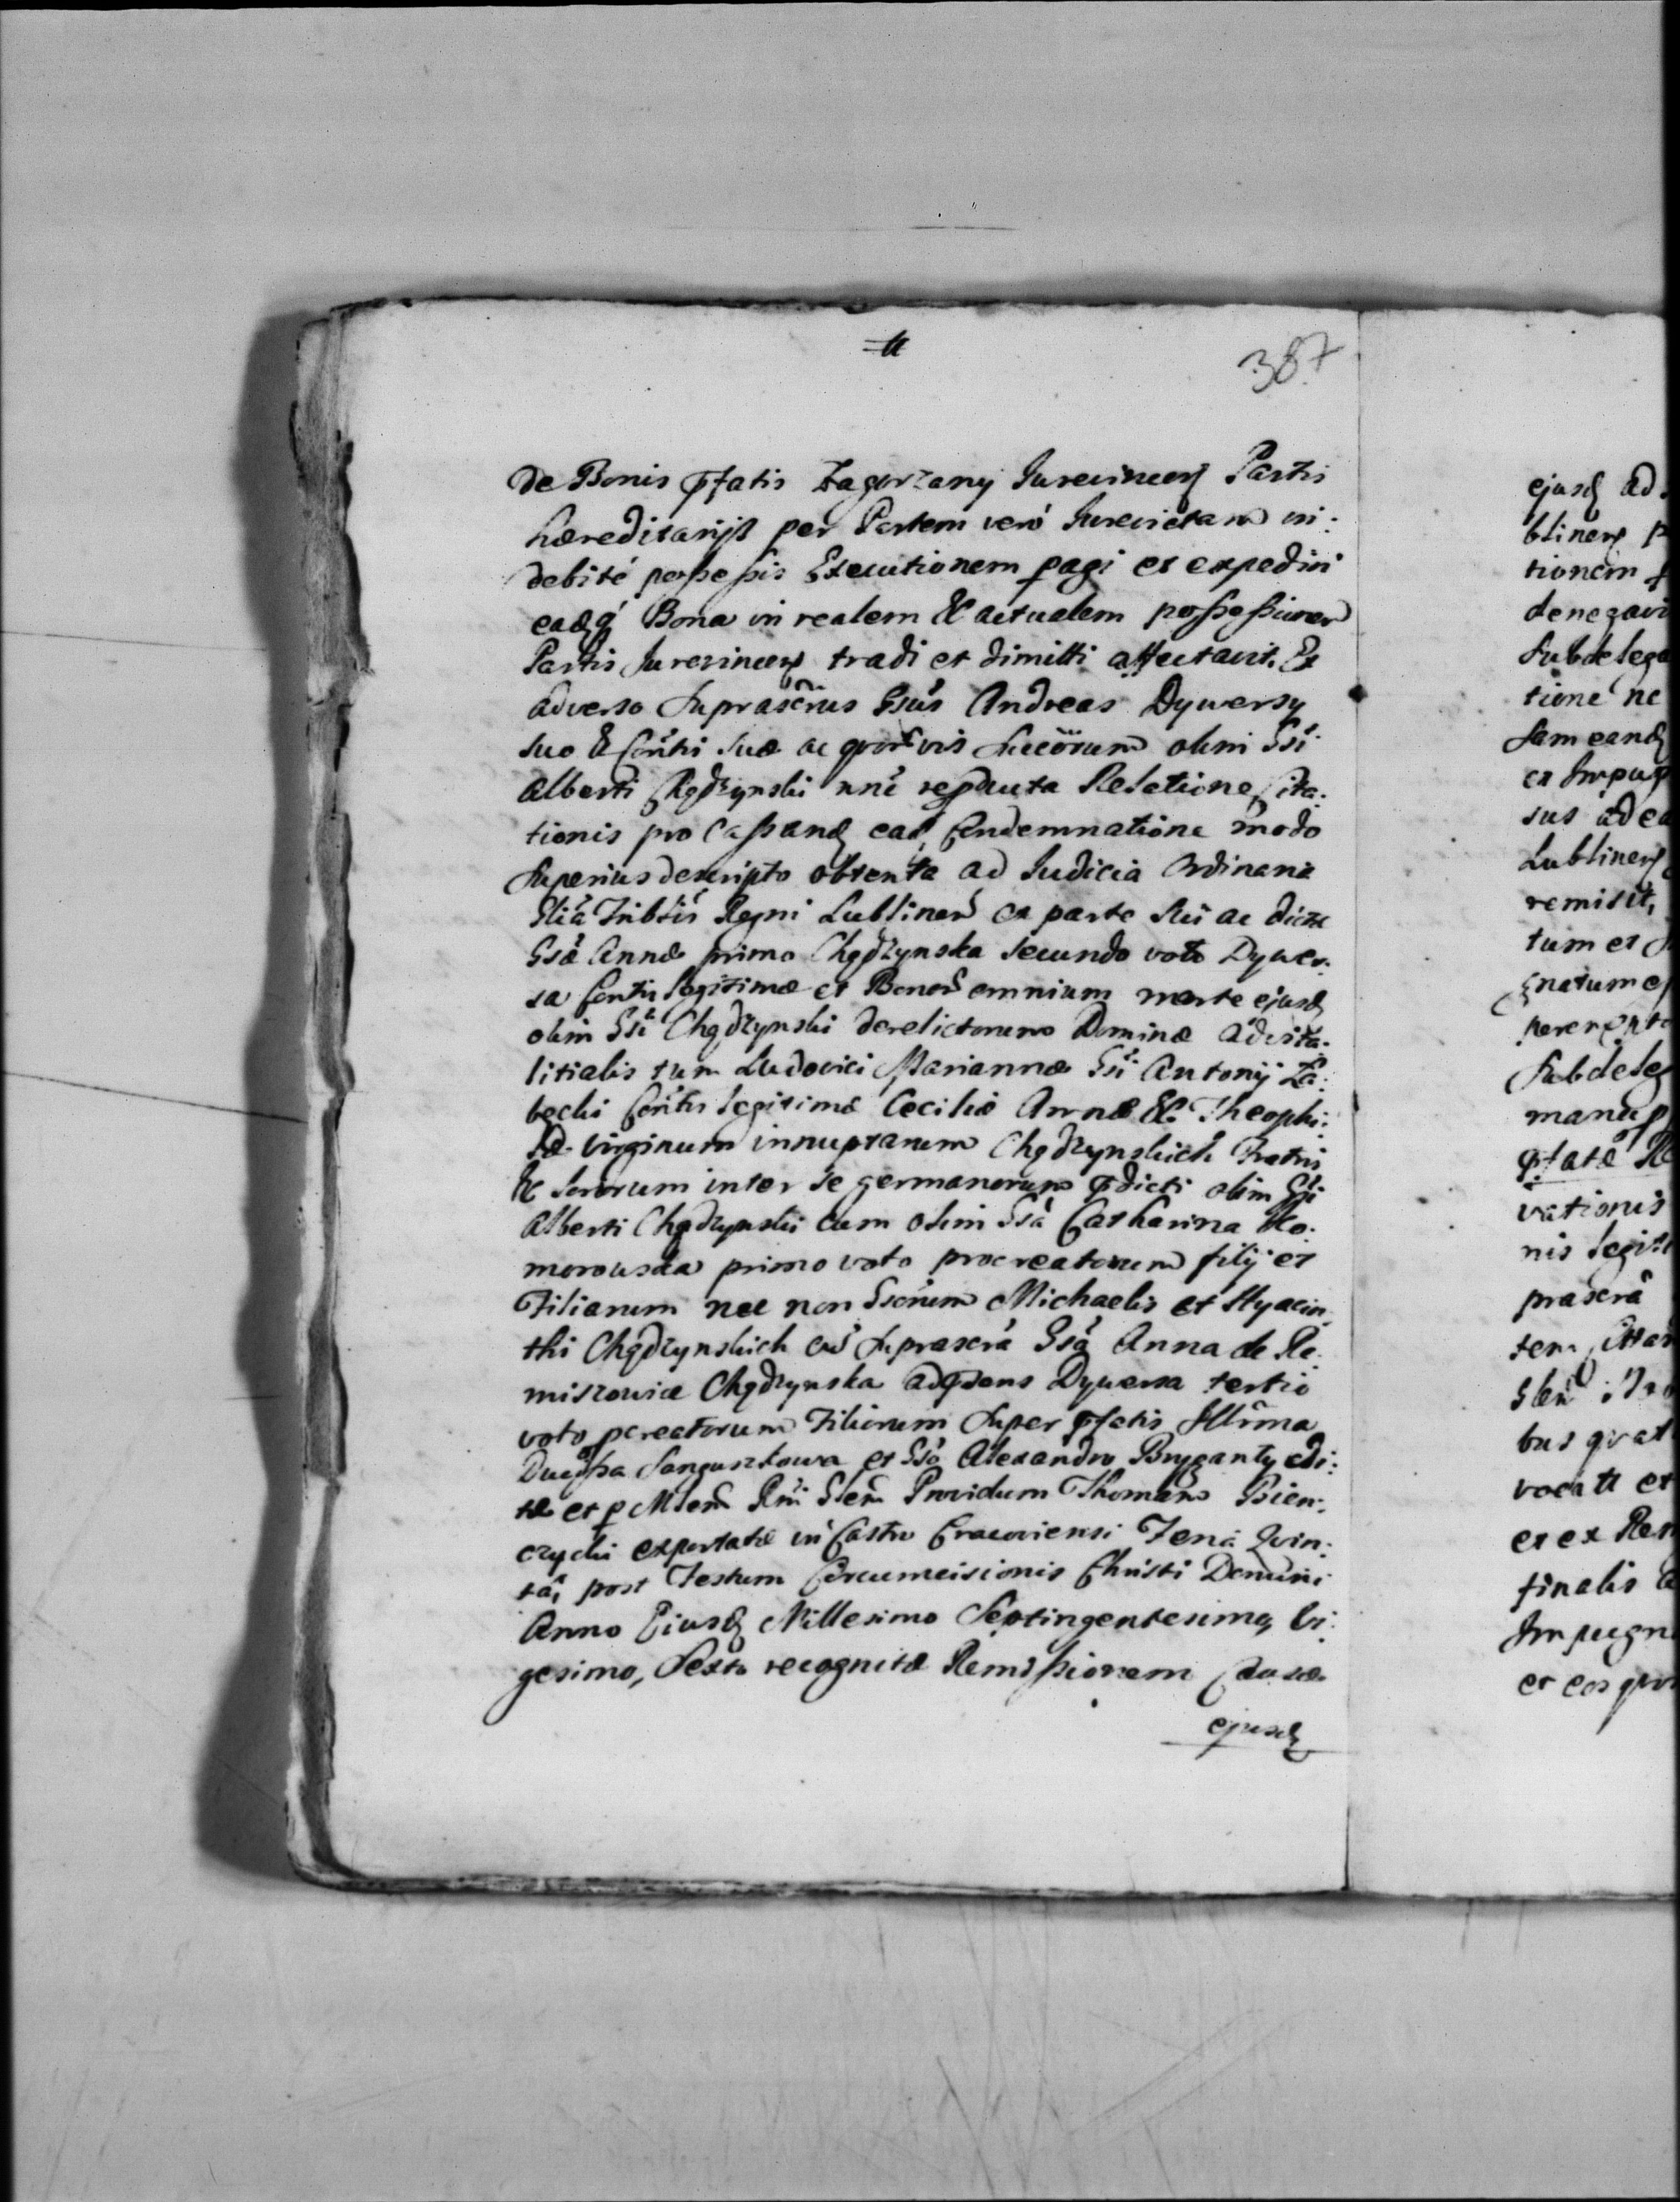 387
de Bonis pfatis Zagorzany Jurevincen Partis
hæreditarijs per Partem verò Jurevictam in:
debité possessis Executionem pagi et expediri
eadq́ Bona in realem & actualem possessionem
Partis Jurevincen tradi et dimitti affectavit. Ex
adverso Suprascrus Gsus Andreas Dywersy
suo & Conthi suæ ac quorvis Succorum olim Gsi
Alberti Chądzynski nnc reproducta Relatione Cita:
tionis pro Cassand ead Condemnatione modo
Superius descripto obtenta ad Judicia Ordinaria
Glia Triblis Regni Lublinen ex parte sui ac dictæ
Gsæ Annæ primo Chądzynska secundo voto Dywer:
sa Conthi legitimæ et Bonor omnium morte ejusd
olim Gsi Chądzynski derelictorum Dominæ advita:
litialis tum Ludovici Mariannæ Gsi Antonij Za:
becki Conthis legitimæ Ceciliæ Annæ & Theophi:
læ Virginum innuptarum Chądzynskich Fratris
& Sororum inter se germanorum pdicti olim Gsi
Alberti Chądzynski cum olim Gsa Catharina Ko:
morowska primo voto procreatorum filij et
Filiarum nec non Gsorum Michaelis et Hyacin
thi Chądzynskich cũ Suprascra Gsa Anna de Re:
miszowiæ Chądzynska adpsens Dywersa tertio
voto pcreatorum Filiorum super pfatis Illrma
Ducissa Sanguszkowa et Gso Alexandro Bryganty edi:
tæ et p Mlem Rni Glem Providum Thomam Bien:
czycki exportatæ in Castro Cracoviensi Feria Quin:
ta, post Festum Circumcisionis Christi Domini
Anno Eiusd Millesimo Septingentesimo, Vi:
gesimo, Sexto recognitæ Remissionem Causæ
ejusd
ejusd ad
blinen
tionem
denegavi
Subdelega
tione ne
sam eand
ex Impug
sus ad ea
Lublinen
remisit,
tum et
gnatum
Subdeleg
manu p
pfatæ Re
vationis
nis legit
prascra
tem
bus quat
vocati et
et ex Rem
finalis
Impugn
et eos quo